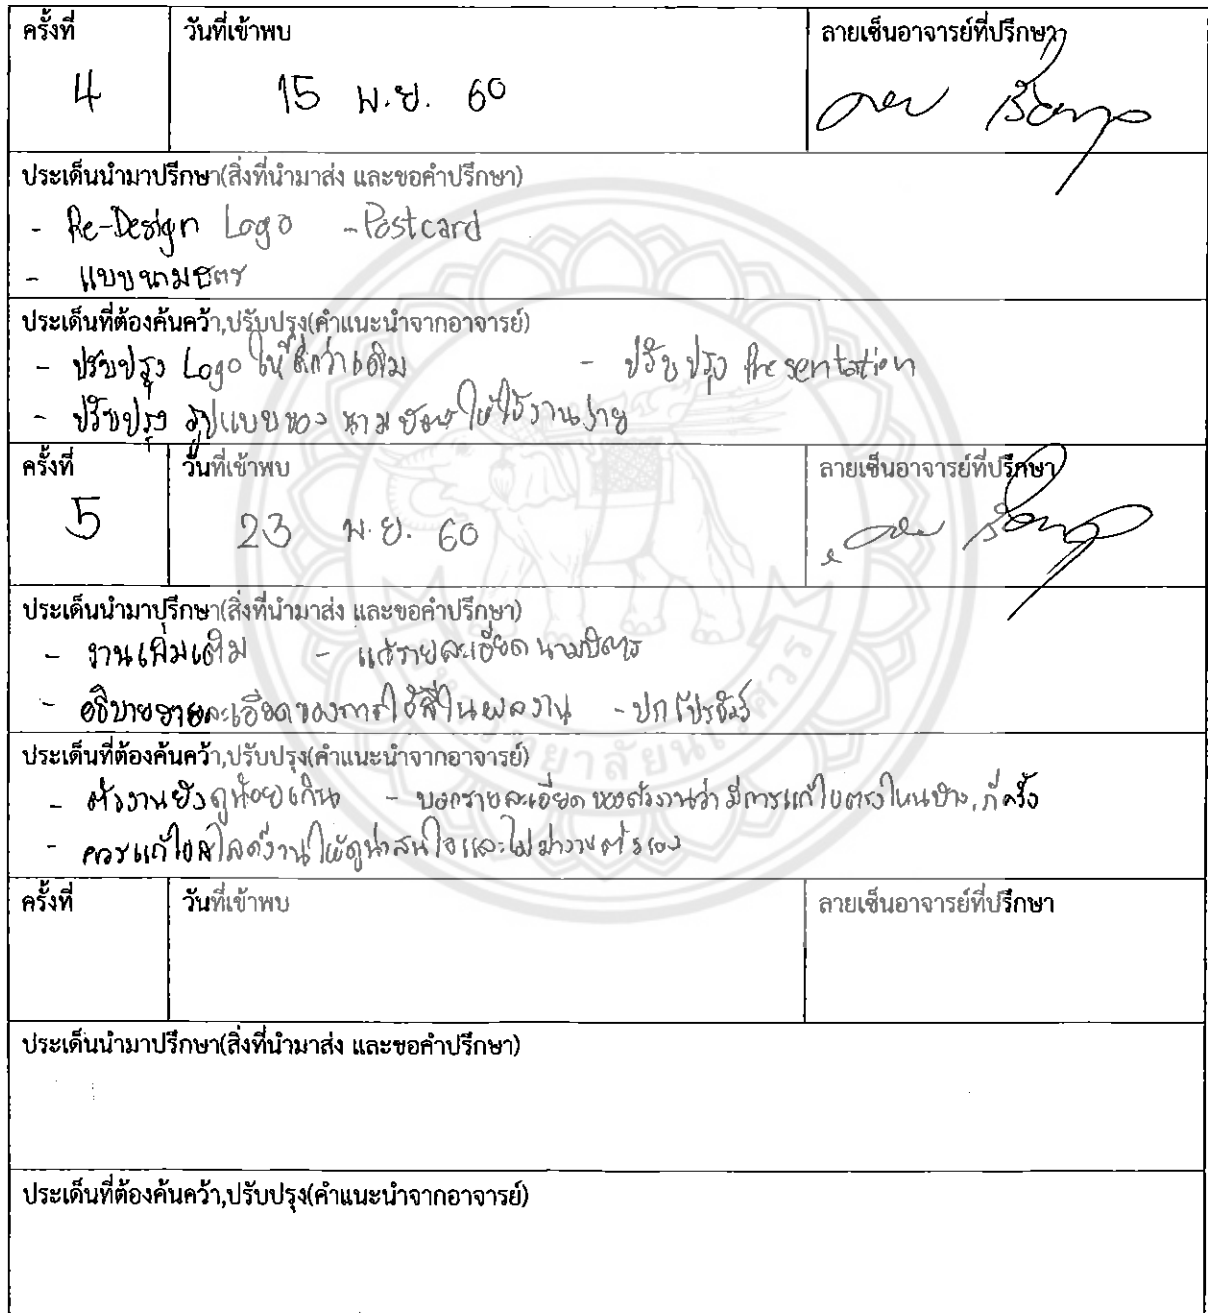 ครั้งที่ วันที่เข้าพบ ลายเซ็นอาจารย์ที่ปรึกษา
4 15 พ.ย. 60
ประเด็นนำมาปรึกษา(สิ่งที่นำมาส่ง และขอคำปรึกษา)
- Re-Design Logo - Postcard
- แบบนามบัตร
ประเด็นที่ต้องค้นคว้า,ปรับปรุง(คำแนะนำจากอาจารย์)
- ปรับปรุง Logo ให้ดีกว่าเดิม - ปรับปรุง Presentation
- ปรับปรุง รูปแบบของ นามบัตรให้ใช้งานง่าย
ครั้งที่ วันที่เข้าพบ ลายเซ็นอาจารย์ที่ปรึกษา
5 23 พ.ย. 60
ประเด็นนำมาปรึกษา(สิ่งที่นำมาส่ง และขอคำปรึกษา)
- งานเพิ่มเติม - แก้รายละเอียด นามบัตร
- อธิบายรายละเอียดของการใช้สีในผลงาน - ปก
ประเด็นที่ต้องค้นคว้า,ปรับปรุง(คำแนะนำจากอาจารย์)
- ตัวงานยังดูน้อยเกิน - บอกรายละเอียดของตัวงานว่า มีการแก้ไขตรงไหนบ้าง, กี่ครั้ง
- ควรแก้ไขสไลด์งานให้ดูน่าสนใจและ
ครั้งที่ วันที่เข้าพบ ลายเซ็นอาจารย์ที่ปรึกษา
ประเด็นนำมาปรึกษา(สิ่งที่นำมาส่ง และขอคำปรึกษา)
ประเด็นที่ต้องค้นคว้า,ปรับปรุง(คำแนะนำจากอาจารย์)